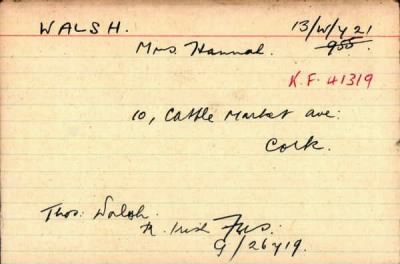 WALSH. 13/W/Y 21
Mrs. Hannah. 955.
K.F. 41319
10, Cattle Market Ave:
Cork.
Thos: Walsh.
R. Irish Fus.
G/26419.